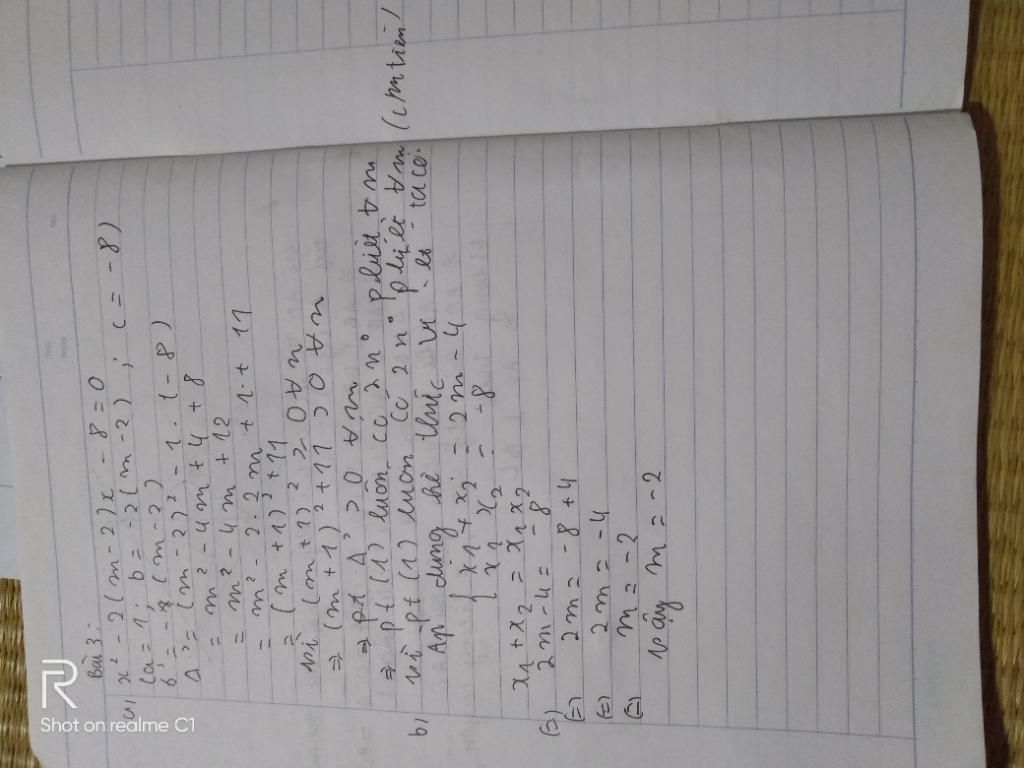 Bài 3:
a) x² - 2(m-2)x - 8 = 0
(a = 1; b = -2(m-2); c = -8)
b' = -(m-2)
Δ' = (m-2)² - 1.(-8)
= m² - 4m + 4 + 8
= m² - 4m + 12
= m² - 2.2m + 1 + 11
= (m+1)² + 11
vì (m+1)² ≥ 0 ∀m
⇒ (m+1)² + 11 > 0 ∀m
⇒ pt Δ' > 0 ∀m
⇒ pt (1) luôn có 2 nº pbiệt ∀m
b) vì pt (1) luôn có 2 nº pbiệt ∀m (cmtrên)
Áp dụng hệ thức vi-ét ta có:
{ x1 + x2 = 2m - 4
x1 x2 = -8
x1 + x2 = x1 x2
(=) 2m - 4 = -8
(=) 2m = -8 + 4
(=) 2m = -4
(=) m = -2
vậy m = -2
R
Shot on realme C1